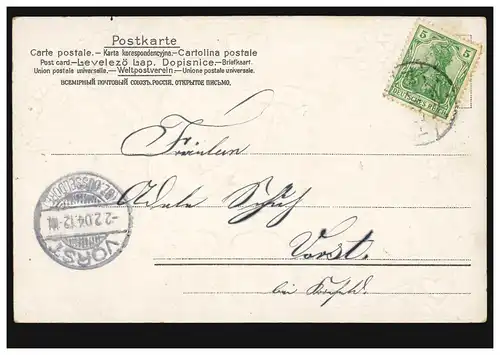 Postkarte
Carte postale. – Karta korespondencyjna. – Cartolina postale
Post card. – Levelező Lap. Dopisnice. – Briefkaart.
Union postale universelle. – Weltpostverein. – Unione postale universale.
ВСЕМІРНЫЙ ПОЧТОВЫЙ СОЮЗЪ. РОССІЯ. ОТКРЫТОЕ ПИСЬМО.
5 5
DEUTSCHES REICH
Fräulein
Adele Schuh
Vorst.
bei
VORST
-2.2.04.12-
(BZ. DÜSSELDORF)